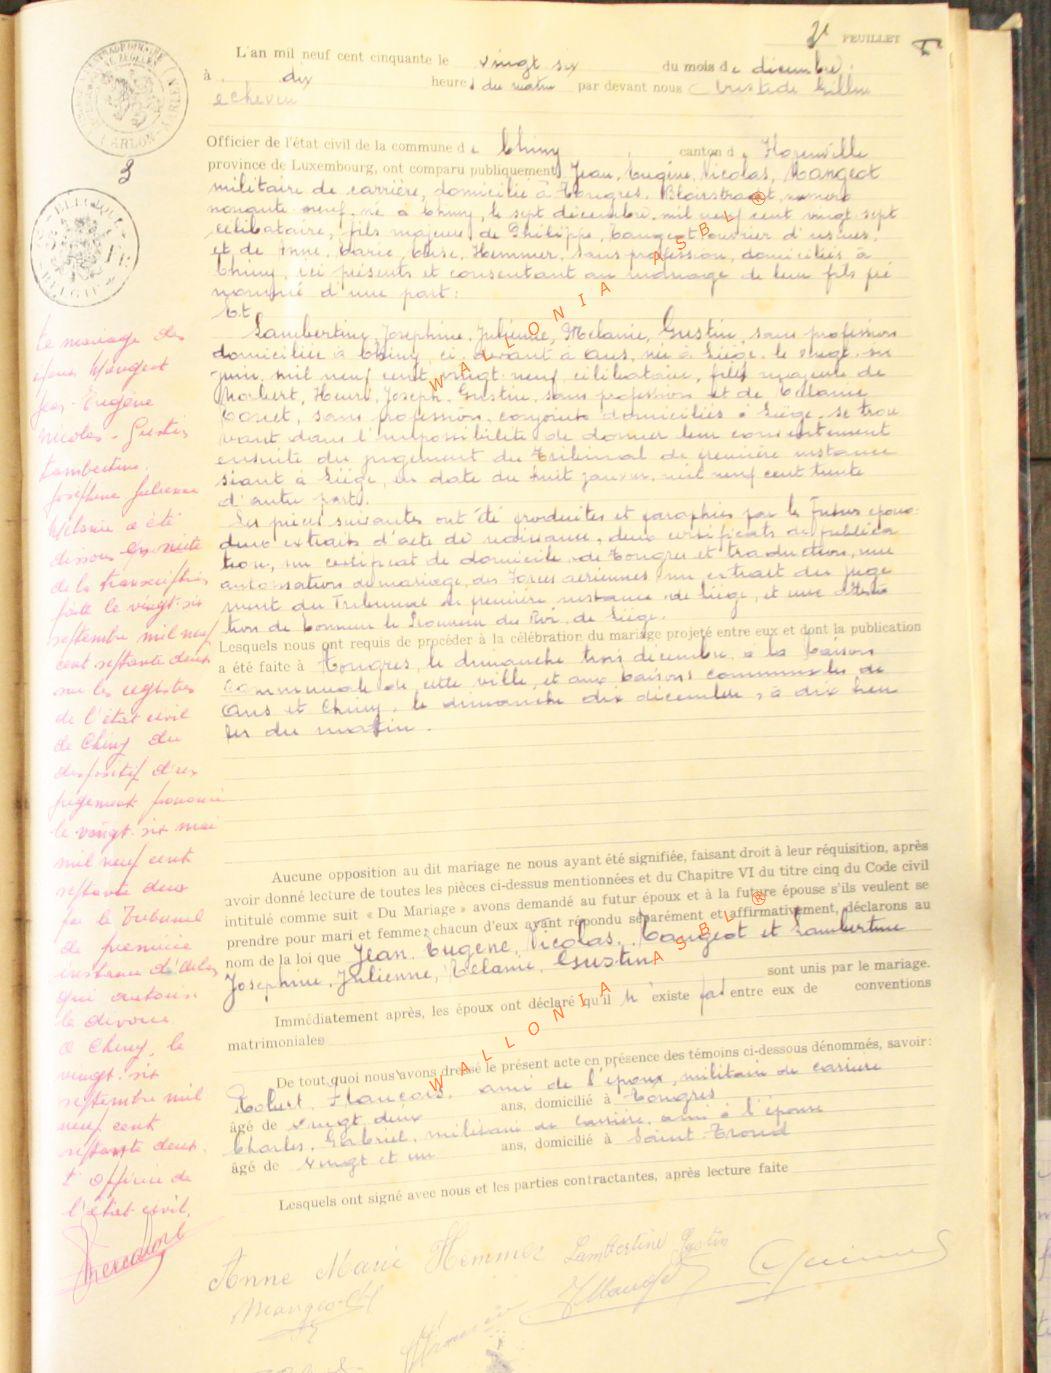 2e FEUILLET
L'an mil neuf cent cinquante le vingt six du mois de décembre
à dix heures du matin par devant nous Aristide Gillin
echevin
Officier de l'état civil de la commune de Chiny, canton de Florenville
province de Luxembourg, ont comparu publiquement Jean, Eugène, Nicolas, Mangeot
militaire de carrière, domicilié à Tongres, numéro
nonante neuf, né à Chiny, le sept décembre mil neuf cent vingt-sept
célibataire, fils majeur de Philippe, Mangeot ouvrier d'usines,
et de Anne, Marie, Hemmer, sans profession, domiciliés à
Chiny, ici présents et consentant au mariage de leur fils pré
nommé d'une part:
Et
Lambertine, Joséphine, Julienne, Mélanie, Gustin, sans profession
domiciliée à Chiny, ci-devant à Ans, née à Liége, le vingt-six
juin, mil neuf cent vingt-neuf célibataire, fille majeure de
Norbert, Henri, Joseph, Gustin, sans profession et de Mélanie
sans profession, conjoints domiciliés à Liége, se trou
vant dans l'impossibilité de donner leur consentement
ensuite du jugement du Tribunal de première instance
séant à Liége, en date du huit janvier, mil neuf cent trente
d'autre part.
Les pièces suivantes ont été produites et paraphées par les futurs époux:
deux extraits d'acte de naissance, deux certificats de publica
tion, un certificat de domicile de Tongres et traduction, une
autorisation de mariage des Forces aériennes un extrait du juge
ment du Tribunal de première instance de Liége, et une attesta
tion de Monsieur le Procureur du Roi, de Liége.
Lesquels nous ont requis de procéder à la célébration du mariage projeté entre eux et dont la publication
a été faite à Tongres, le dimanche trois décembre, à la maison
communale de cette ville, et aux maisons communales de
Ans et Chiny, le dimanche dix décembre, à dix heu
res du matin.
Aucune opposition au dit mariage ne nous ayant été signifiée, faisant droit à leur réquisition, après
avoir donné lecture de toutes les pièces ci-dessus mentionnées et du Chapitre VI du titre cinq du Code civil
intitulé comme suit « Du Mariage » avons demandé au futur époux et à la future épouse s'ils veulent se
prendre pour mari et femme; chacun d'eux ayant répondu séparément et affirmativement, déclarons au
nom de la loi que Jean, Eugène, Nicolas, Mangeot et Lambertine
Joséphine, Julienne, Mélanie, Gustin
sont unis par le mariage.
Immédiatement après, les époux ont déclaré qu'il n'existe pas entre eux de conventions
matrimoniales
De tout quoi nous avons dressé le présent acte en présence des témoins ci-dessous dénommés, savoir:
Robert, François, ami de l'époux, militaire de carrière
âgé de vingt deux ans, domicilié à Tongres
Charles, Gabriel, militaire de carrière, ami à l'épouse
âgé de vingt et un ans, domicilié à Saint-Trond
Lesquels ont signé avec nous et les parties contractantes, après lecture faite
Anne Marie Hemmer Lambertine Gustin
Mangeot
Le mariage des
époux Mangeot
Jean-Eugène
Nicolas - Gustin
Lambertine.
Joséphine Julienne
Mélanie a été
dissous en suite
de la transcription
faite le vingt-six
septembre mil neuf
cent septante deux
sur les registres
de l'état civil
de Chiny du
dispositif d'un
jugement prononcé
le vingt-six mai
mil neuf cent
septante deux
par le Tribunal
de première
instance d'Arlon
qui autorise
le divorce.
A Chiny, le
vingt-six
septembre mil
neuf cent
septante deux.
L'officier de
l'état civil,
WALLONIA ASBL ®
WALLONIA ASBL ®